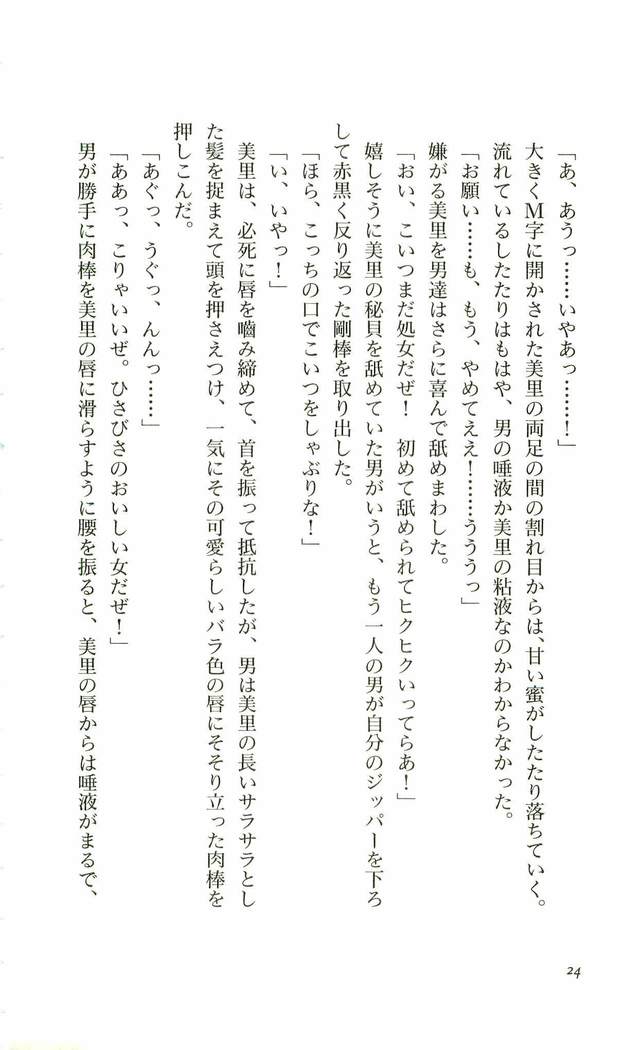 「あ、あうっ……いやあっ……！」
大きくM字に開かされた美里の両足の間の割れ目からは、甘い蜜がしたたり落ちていく。
流れているしたたりはもはや、男の唾液か美里の粘液なのかわからなかった。
「お願い……も、もう、やめてええ！……うううっ」
嫌がる美里を男達はさらに喜んで舐めまわした。
「おい、こいつまだ処女だぜ！　初めて舐められてヒクヒクいってらあ！」
嬉しそうに美里の秘貝を舐めていた男がいうと、もう一人の男が自分のジッパーを下ろ
して赤黒く反り返った剛棒を取り出した。
「ほら、こっちの口でこいつをしゃぶりな！」
「い、いやっ！」
美里は、必死に唇を嚙み締めて、首を振って抵抗したが、男は美里の長いサラサラとし
た髪を捉まえて頭を押さえつけ、一気にその可愛らしいバラ色の唇にそそり立った肉棒を
押しこんだ。
「あぐっ、うぐっ、んんっ……」
「ああっ、こりゃいいぜ。ひさびさのおいしい女だぜ！」
男が勝手に肉棒を美里の唇に滑らすように腰を振ると、美里の唇からは唾液がまるで、
24